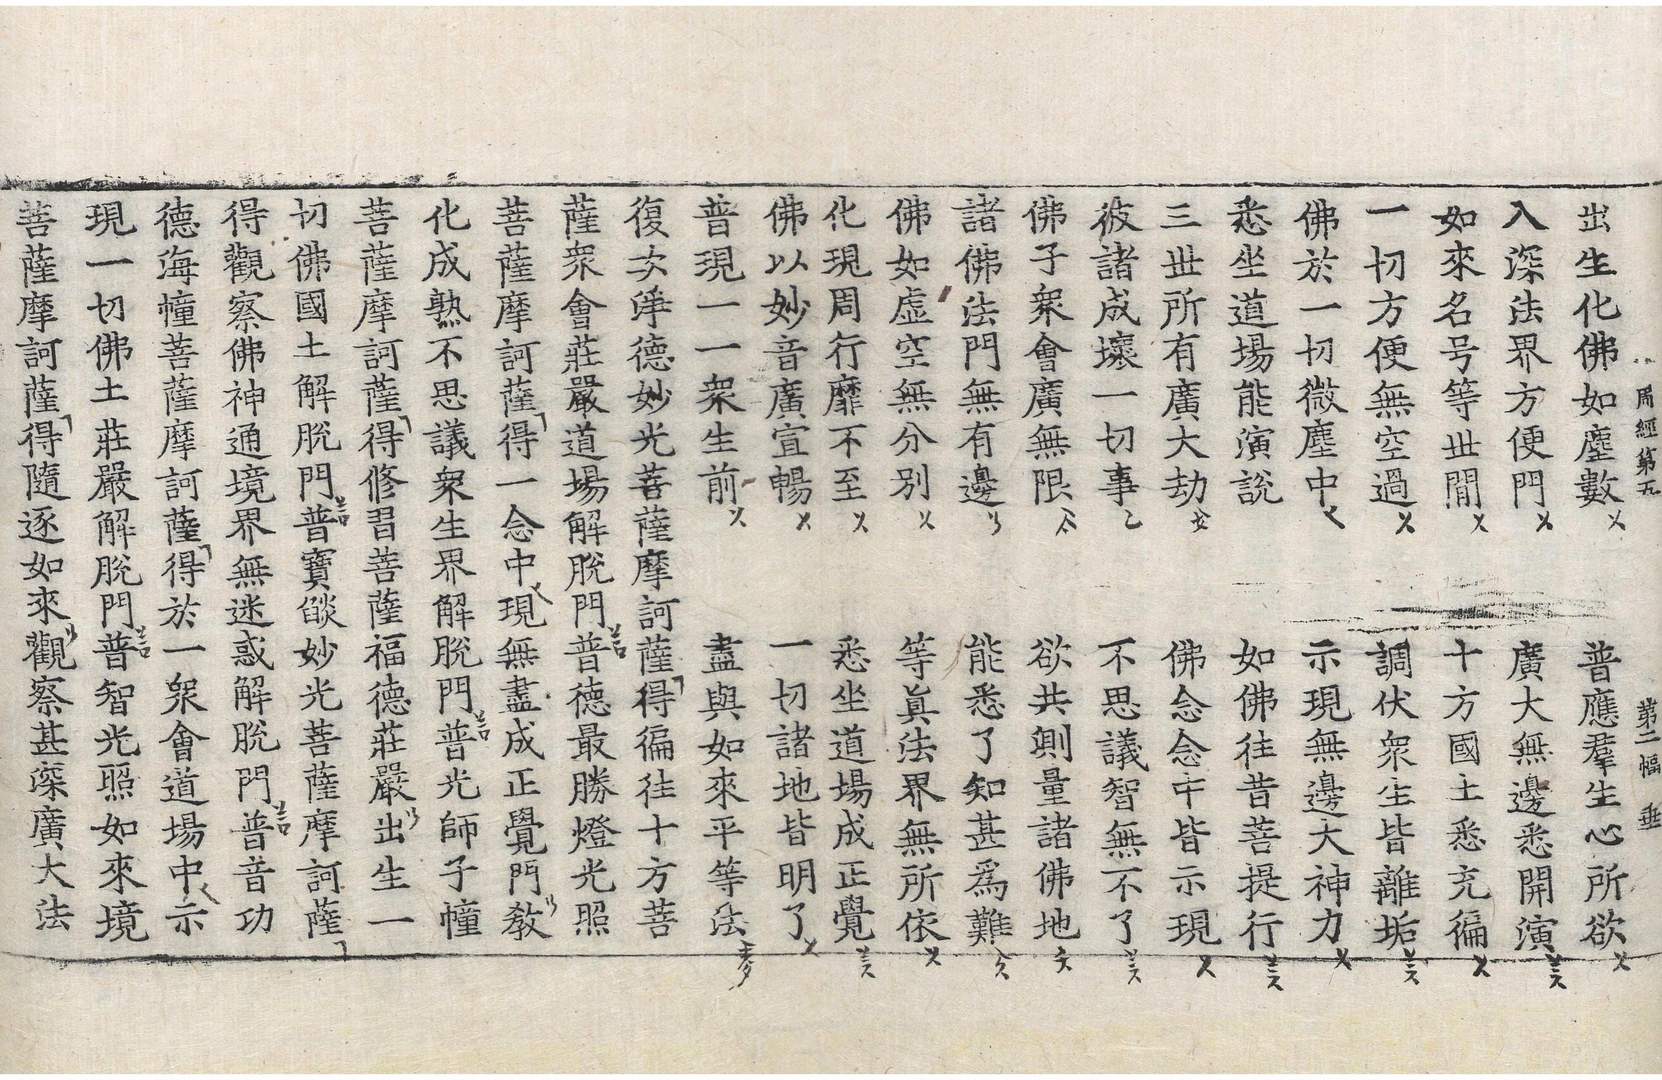 周經第五　第二幅　垂
出生化佛如塵數　普應羣生心所欲
入深法界方便門　廣大無邊悉開演
如來名号等丗閒　十方國土悉充徧
一切方便無空過　調伏衆生皆離垢
佛於一切微塵中　示現無邊大神力
悉坐道場能演說　如佛往昔菩提行
三丗所有廣大劫　佛念念中皆示現
彼諸成壞一切事　不思議智無不了
佛子衆會廣無限　欲共測量諸佛地
諸佛法門無有邊　能悉了知甚爲難
佛如虛空無分別　等眞法界無所依
化現周行靡不至　悉坐道場成正覺
佛以妙音廣宣暢　一切諸地皆明了
普現一一衆生前　盡與如來平等法
復次淨德妙光菩薩摩訶薩得徧往十方菩
薩衆會莊嚴道場解脫門普德最勝燈光照
菩薩摩訶薩得一念中現無盡成正覺門教
化成熟不思議衆生界解脫門普光師子幢
菩薩摩訶薩得修習菩薩福德莊嚴出生一
切佛國土解脫門普寶燄妙光菩薩摩訶薩
得觀察佛神通境界無迷惑解脫門普音功
德海幢菩薩摩訶薩得於一衆會道場中示
現一切佛土莊嚴解脫門普智光照如來境
菩薩摩訶薩得隨逐如來觀察甚深廣大法